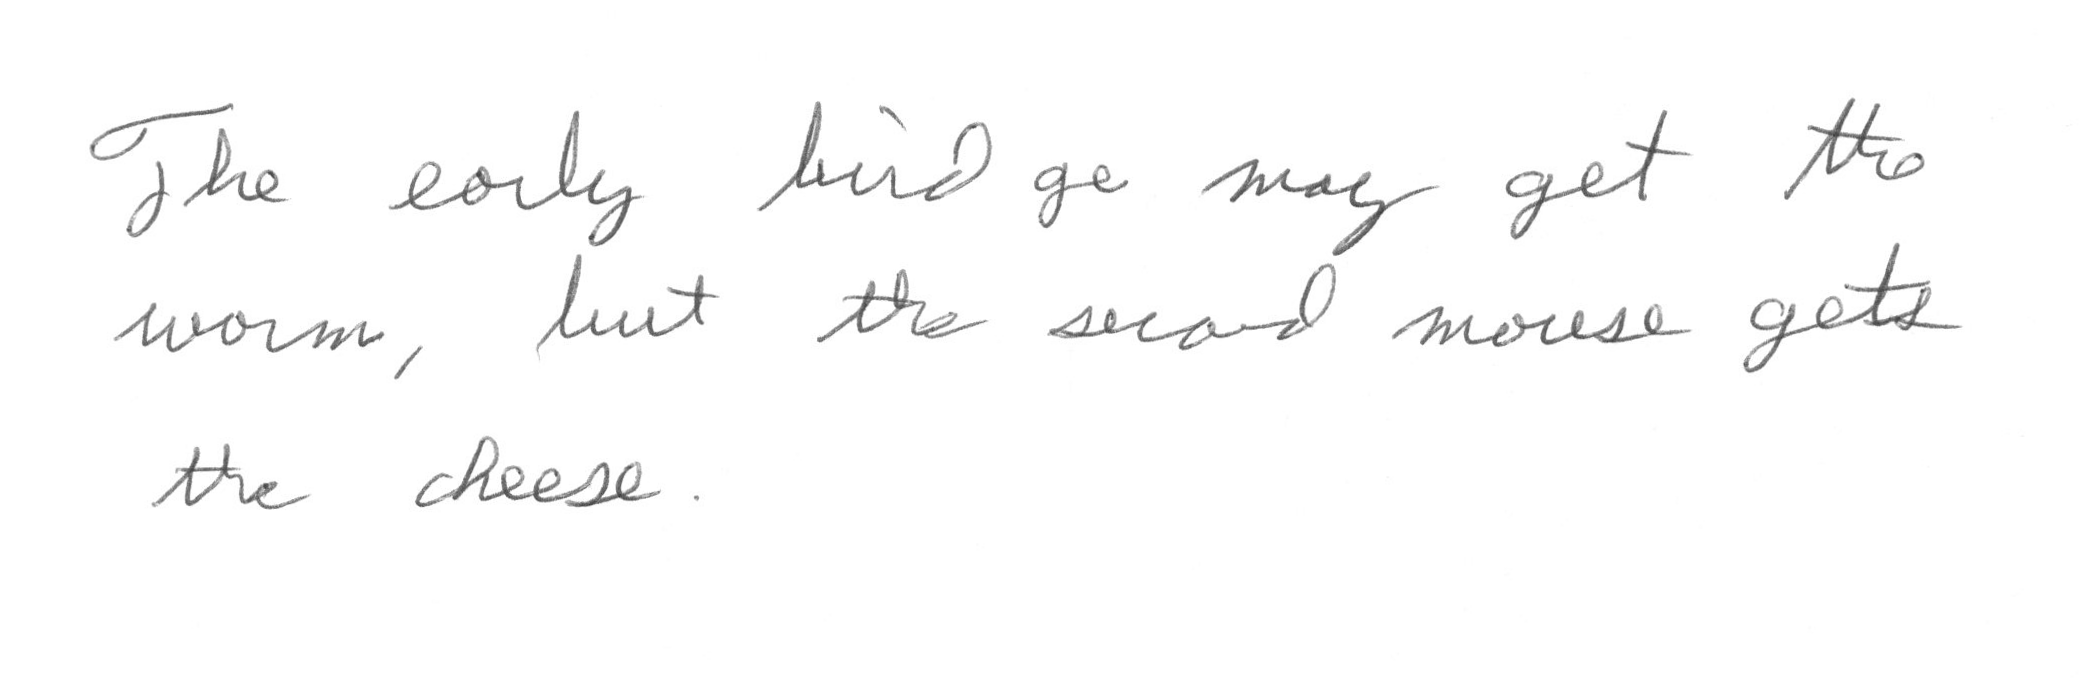 The early bird ge may get the
worm, but the second mouse gets
the cheese.